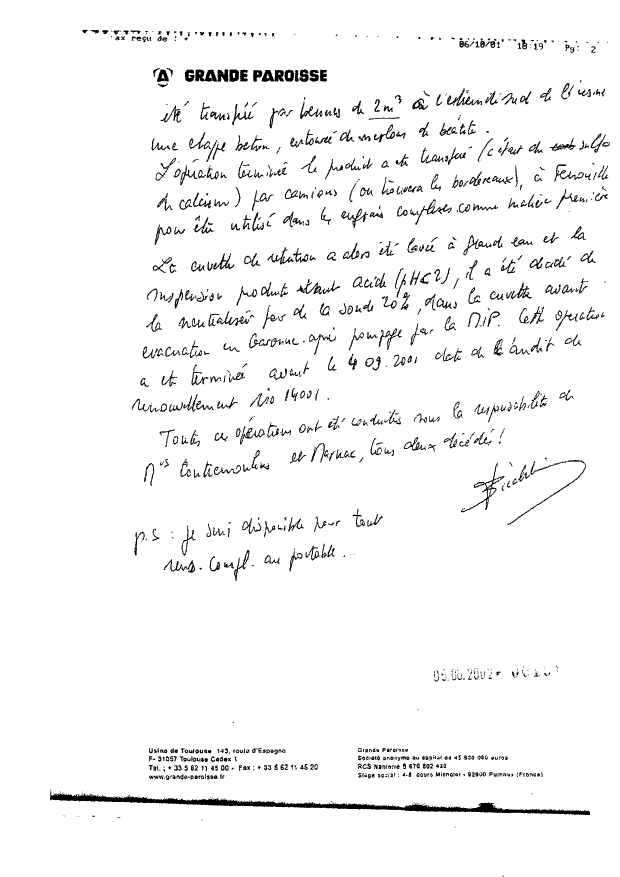 ax reçu de : 06/10/01 18:19 Pg: 2
GRANDE PAROISSE
été transféré par bennes de 2 m³ à l'extrémité sud de l'usine
une chape beton, entourée de merlons de
L'opération terminée le produit a été transféré (c'était du sulfo
de calcium) par camions (on trouvera les bordereaux), à
pour être utilisé dans les engrais complexes comme matière première
La cuvette de rétention a alors été lavée à grande eau et la
suspension produite étant acide (pH≤2), il a été décidé de
la neutraliser par de la soude 20%, dans la cuvette avant
evacuation en Garonne après pompage par la Cette operation
a été terminée avant le 4 09.2001 date de l'audit de
renouvellement iso 14001.
Toutes ces opérations ont été conduites sous la responsabilité de
Mrs et Marnac, tous deux décédés !
p.s : je suis disponible pour tout
rens. compl. au portable.
05.06.2002
Usine de Toulouse 143, route d'Espagne
F- 31057 Toulouse Cedex 1
Tél. : + 33 5 62 11 45 00 - Fax : + 33 5 62 11 45 20
www.grande-paroisse.fr
Grande Paroisse
Société anonyme au capital de euros
RCS Nanterre B 670 802 428
Siège social : 4-8 cours Michelet - 92800 Puteaux (France)